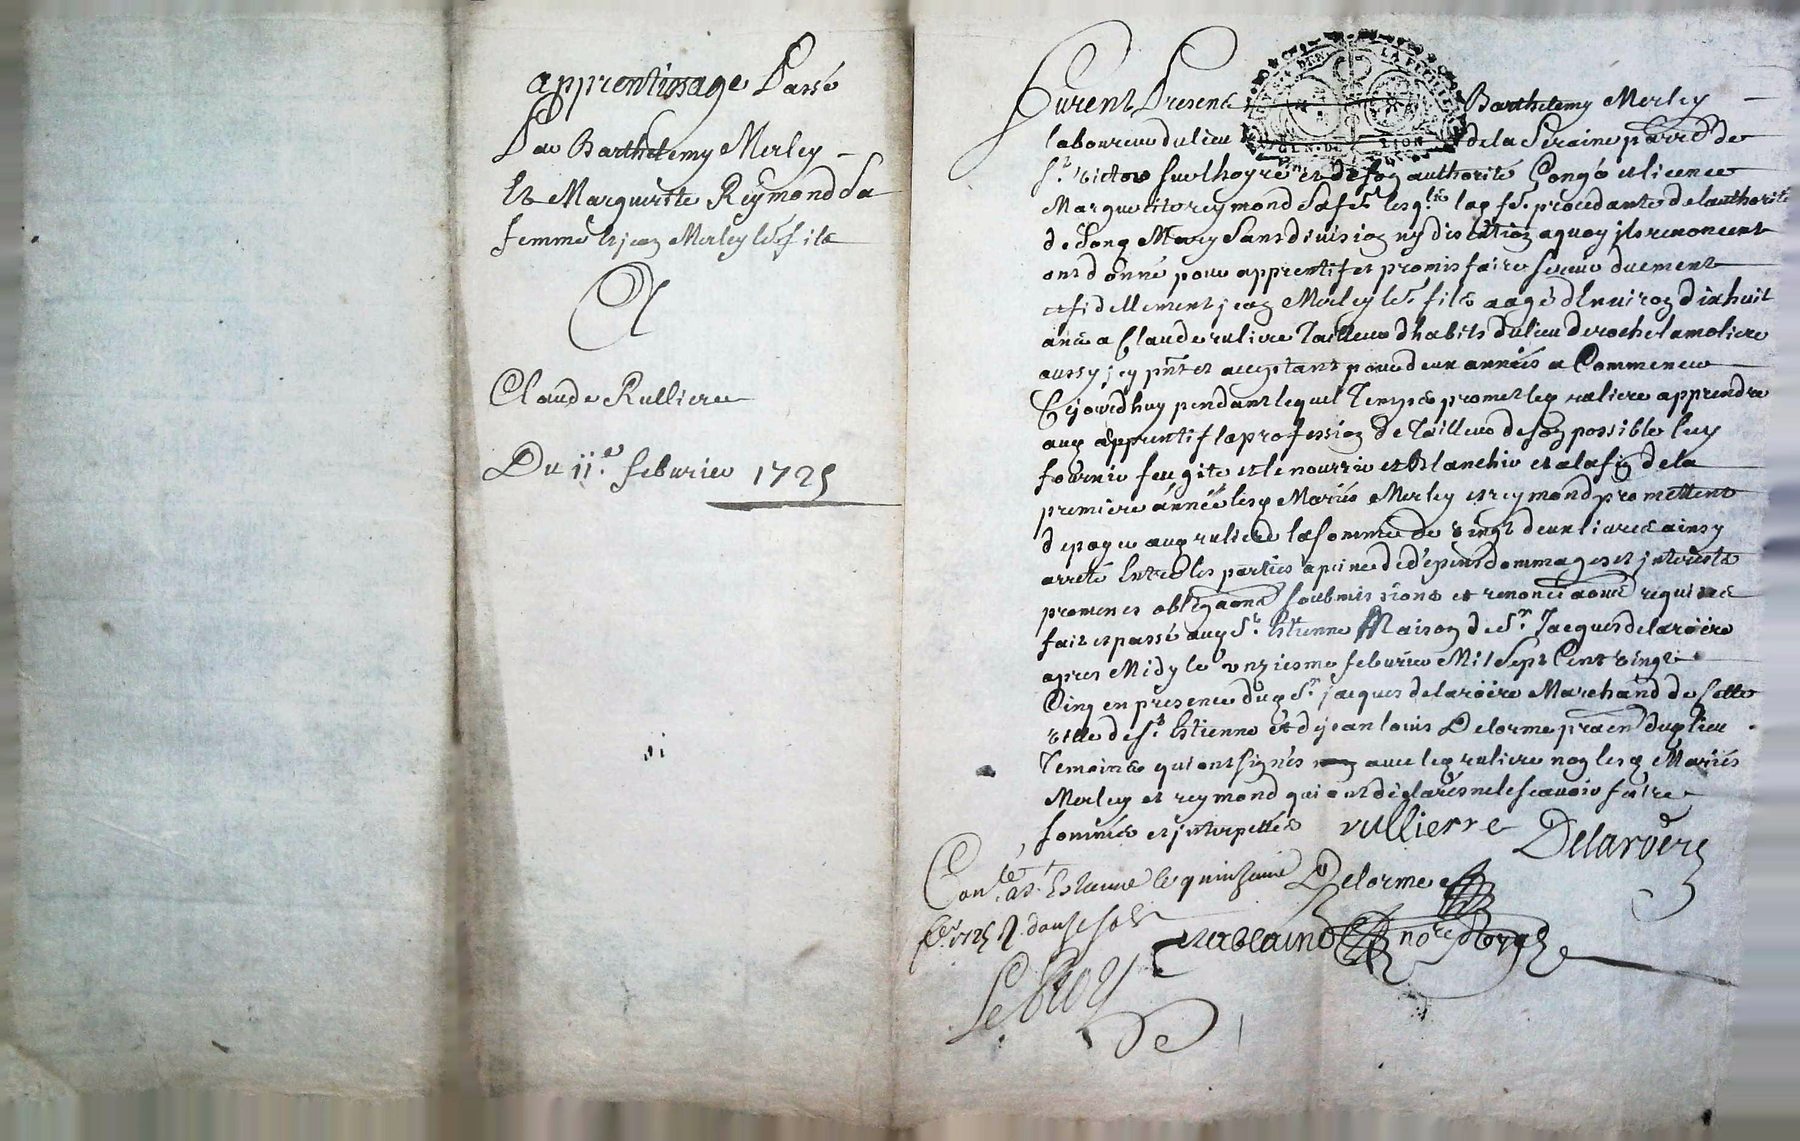 apprentissage Passé
Par Barthelemy Merley
Et Marguerite Reymond Sa
femme et jean Merley le.r fils
A
Claude Rulliere
Du 11.e feburier 1725
Furent Presens Barthelemy Merley
laboureur du lieu de la Seraine parr.e de
S.t victor sur lhoyre et de son authorité Congé et licence
Marguerite reymond sa fe. lesq.ls lad fe. procedante de lauthorité
de Song Mary Sans division ny discution aquoy ils renoncent
ont donné pour apprentif et promis faire servir duement
et fidellement jean Merley le.r fils aagé d'Environ dixhuit
ans a Claude ruliere Tailleur dhabits du lieu de rochelamoliere
aussy jcy pnt et acceptant pour deux années a Commencer
Cejourdhuy pendant lequel Temps promet leq ruliere apprendre
auq apprentif la profession de Tailleur de son possible luy
fournir feu gite et le nourrir et Blanchir et a la fin de la
premiere année lesq Mariés Merley et reymond promettent
de payer auq ruliere la somme de vingt deux livres ainsy
arreté Entre les parties a peine de dépens dommages et jnterests
promenes obligaons soubmissions et renonciaons requises
fait et passé auq S.t Estienne Maison de S.r Jacques delaroëre
apres Midy le vnziesme feburier Mil Sept Cent vingt
Cinq en presence duq S.r jacques delaroëre Marchand de Cette
ville de S.t Estienne et de jean louis Delorme praen duq lieu
Temoins qui ont signés avec leq ruliere non lesq Mariés
Merley et reymond qui ont déclarés ne le scavoir faire
sommés et jnterpellés rullierre Delaroëre
Con.lé a S.t Estienne le quinzieme Delorme
fe.r 1725 R. douze sols
not.re Royal
Le Roy